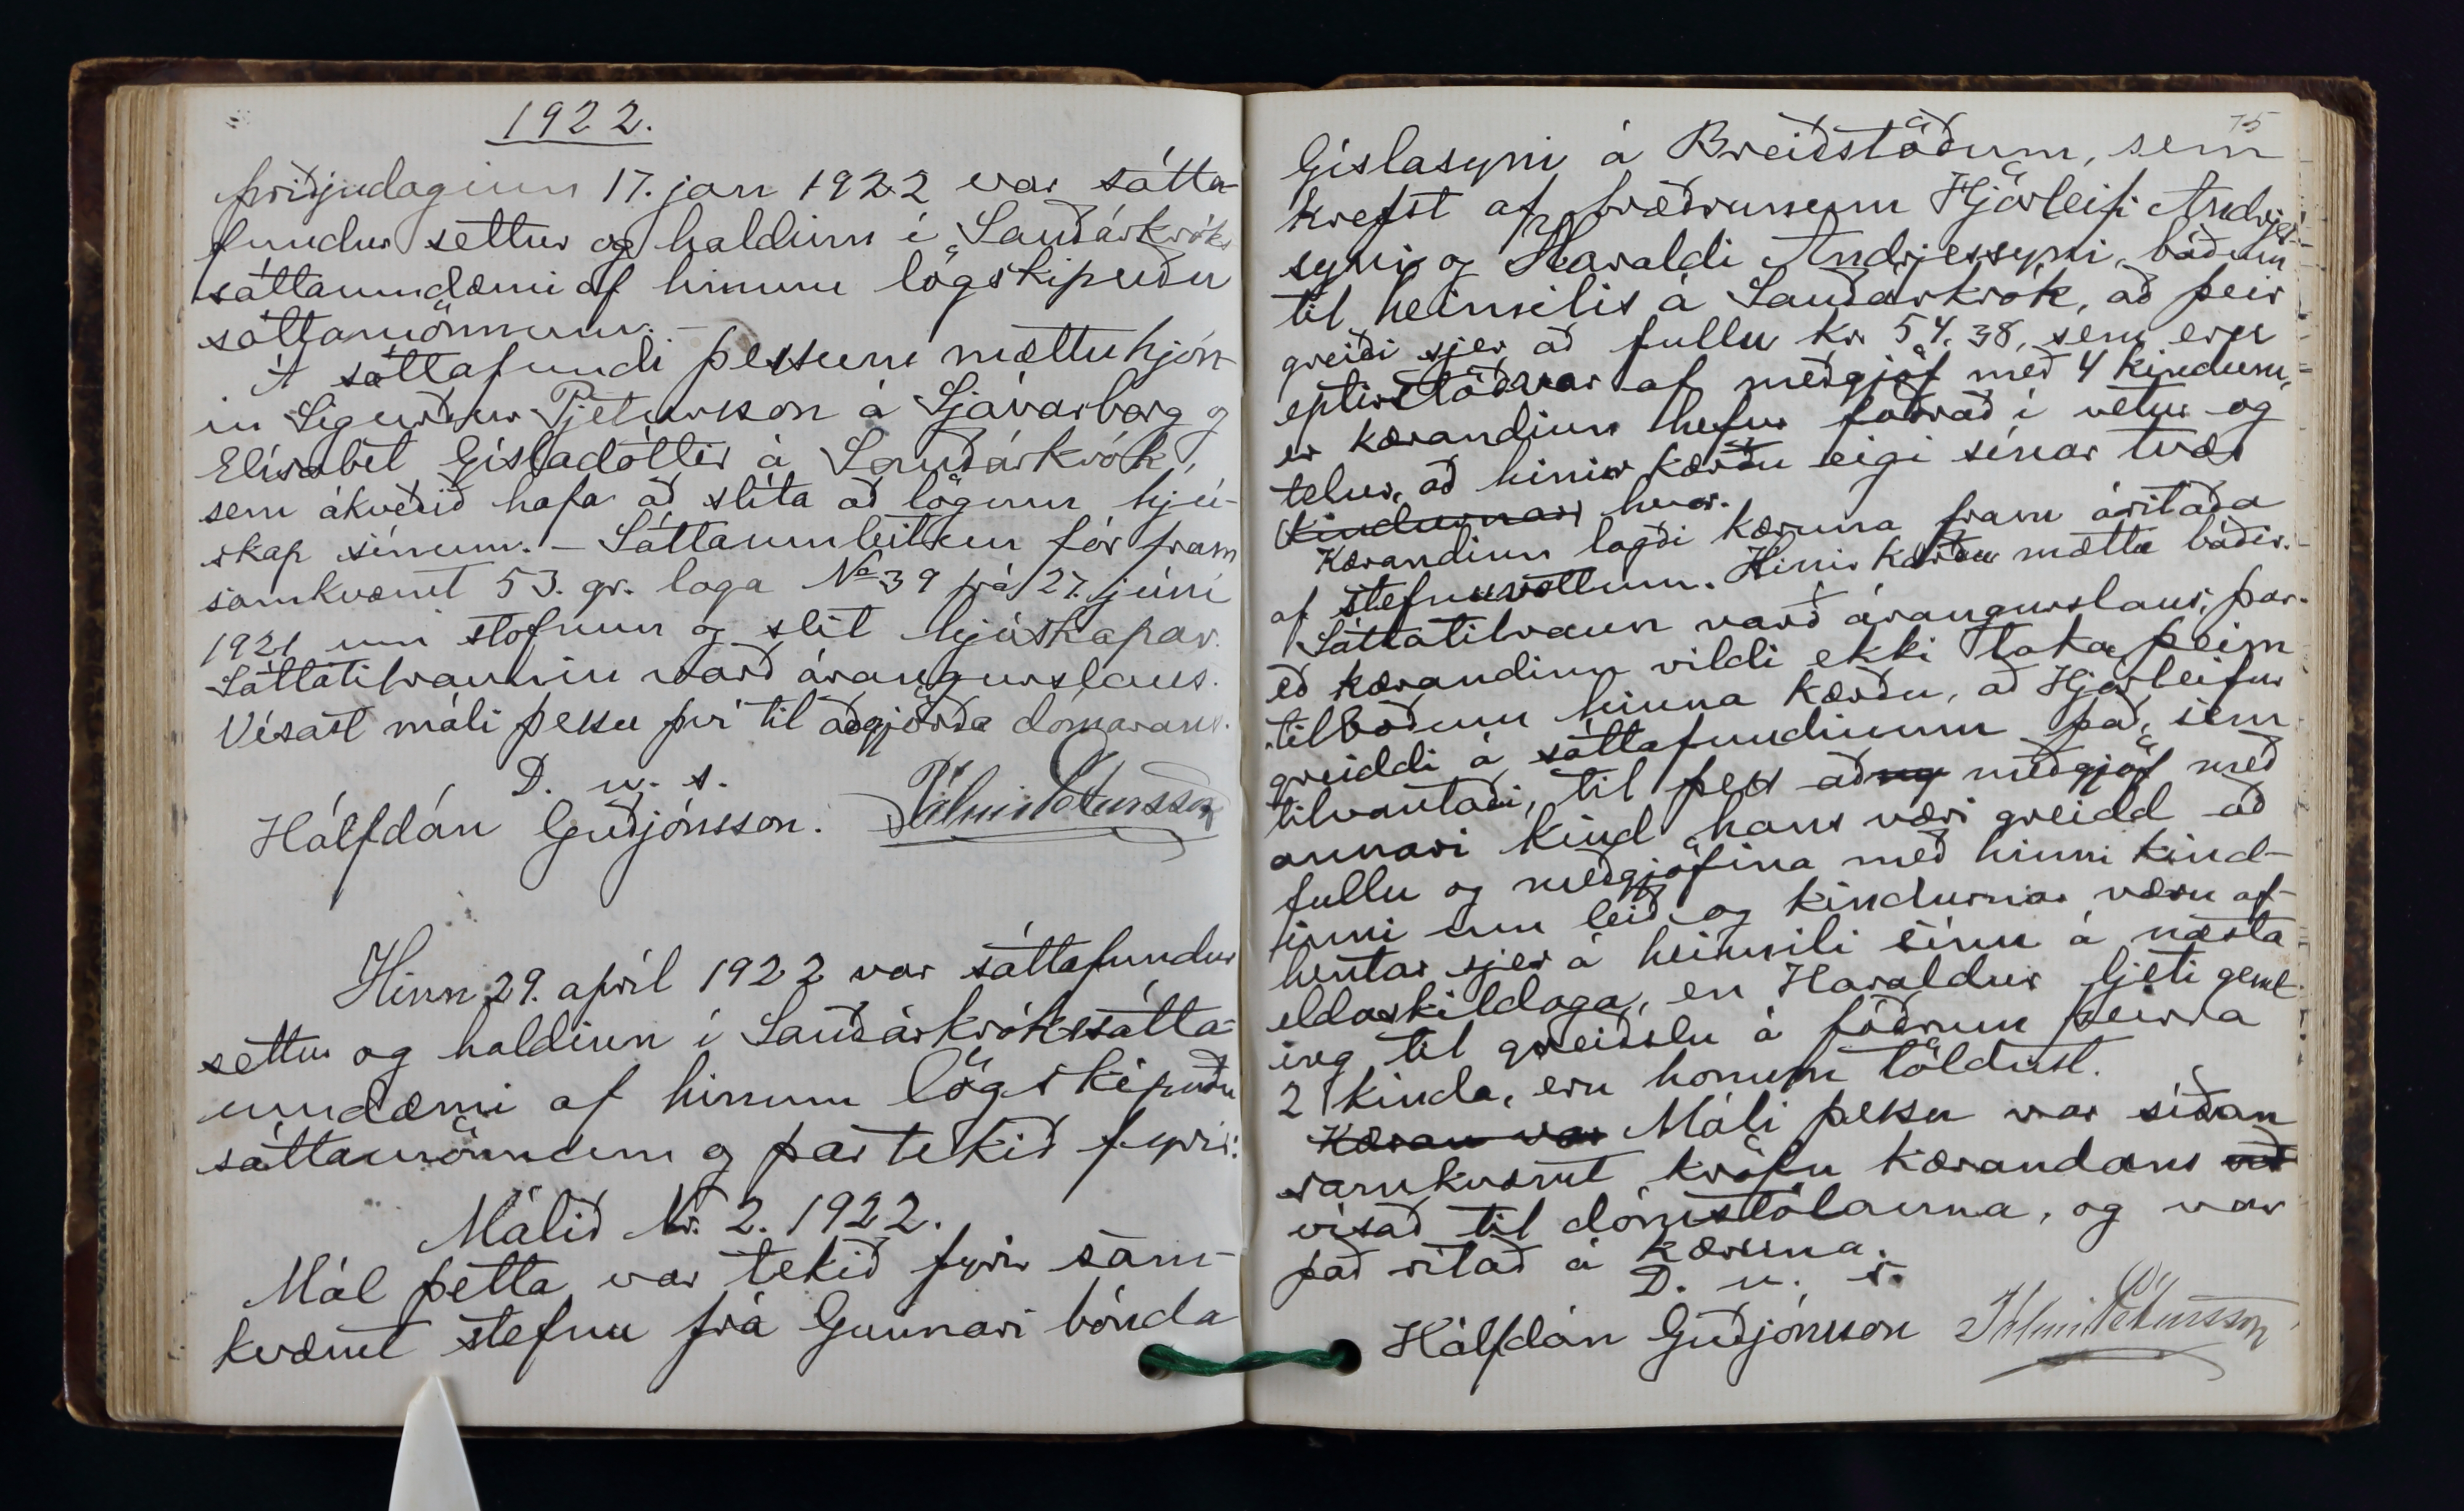 1922.
Þriðjudaginn 17. jan 1922 var sátta-
fundur settur og haldinn í Sauðárkróks
sáttaumdæmi af hinum lögskipuðu
sáttamönnum. –
Á sáttafundi þessum mættu hjón-
in Sigurður Pjetursson á Sjávarborg og
Elísabet Gísladóttir á Sauðárkrók,
sem ákveðið hafa að slíta að lögum hjú-
skap sínum. – Sáttaumleitun fór fram
samkvæmt 53. gr. laga No 39 frá 27. júní
1921 um stofnun og slit hjúskapar.
Sáttatilraunin varð árangurslaus.
Vísast máli þessu því til aðgjörða dómarans.
D. u. s.
Hálfdán Guðjónsson. Pálmi Pétursson
Hinn 29. apríl 1922 var sáttafundur
settur og haldinn í Sauðárkrókssátta-
umdæmi af hinum lögskipuðu
sáttamönnum og þar tekið fyrir:
Málið Nr. 2. 1922.
Mál þetta var tekið fyrir sam-
kvæmt stefnu frá Gunnari bónda
75
Gíslasyni á Breiðstöðum, sem
krefst af bræðrunum Hjörleifi Andrjes-
syni og Haraldi Andrjessyni, báðum
til heimilis á Sauðárkrók, að þeir
greiði sjer að fullu kr 54.38, sem eru
eptirstöðvar af meðgjöf með 4 kindum,
er kærandinn hefur fóðrað í vetur og
telur, að hinir kærðu eigi sínar tvær
kindurnar hvor.
Kærandinn lagði kæruna fram áritaða
af stefnuvottum. Hinir kærðu mættu báðir.
Sáttatilraun varð árangurslaus, þar-
eð kærandinn vildi ekki taka þeim
tilboðum hinna kærðu, að Hjörleifur
greiddi á sáttafundinum það, sem
tilvantaði, til þess að meðgjöf með
annari kind hans væri greidd að
fullu og meðgjöfina með hinni kind-
inni um leið og kindurnar væru af-
hentar sjer á heimili sínu á næsta
eldaskildaga, en Haraldur ljeti geml-
ing til greiðslu á fóðrum þeirra
2 kinda, eru honum töldust.
Kæran var Máli þessu var síðan
samkvæmt kröfu kærandans við
vísað til dómstólanna, og var
það ritað á kæruna.
D. u. s.
Hálfdán Guðjónsson Pálmi Pétursson